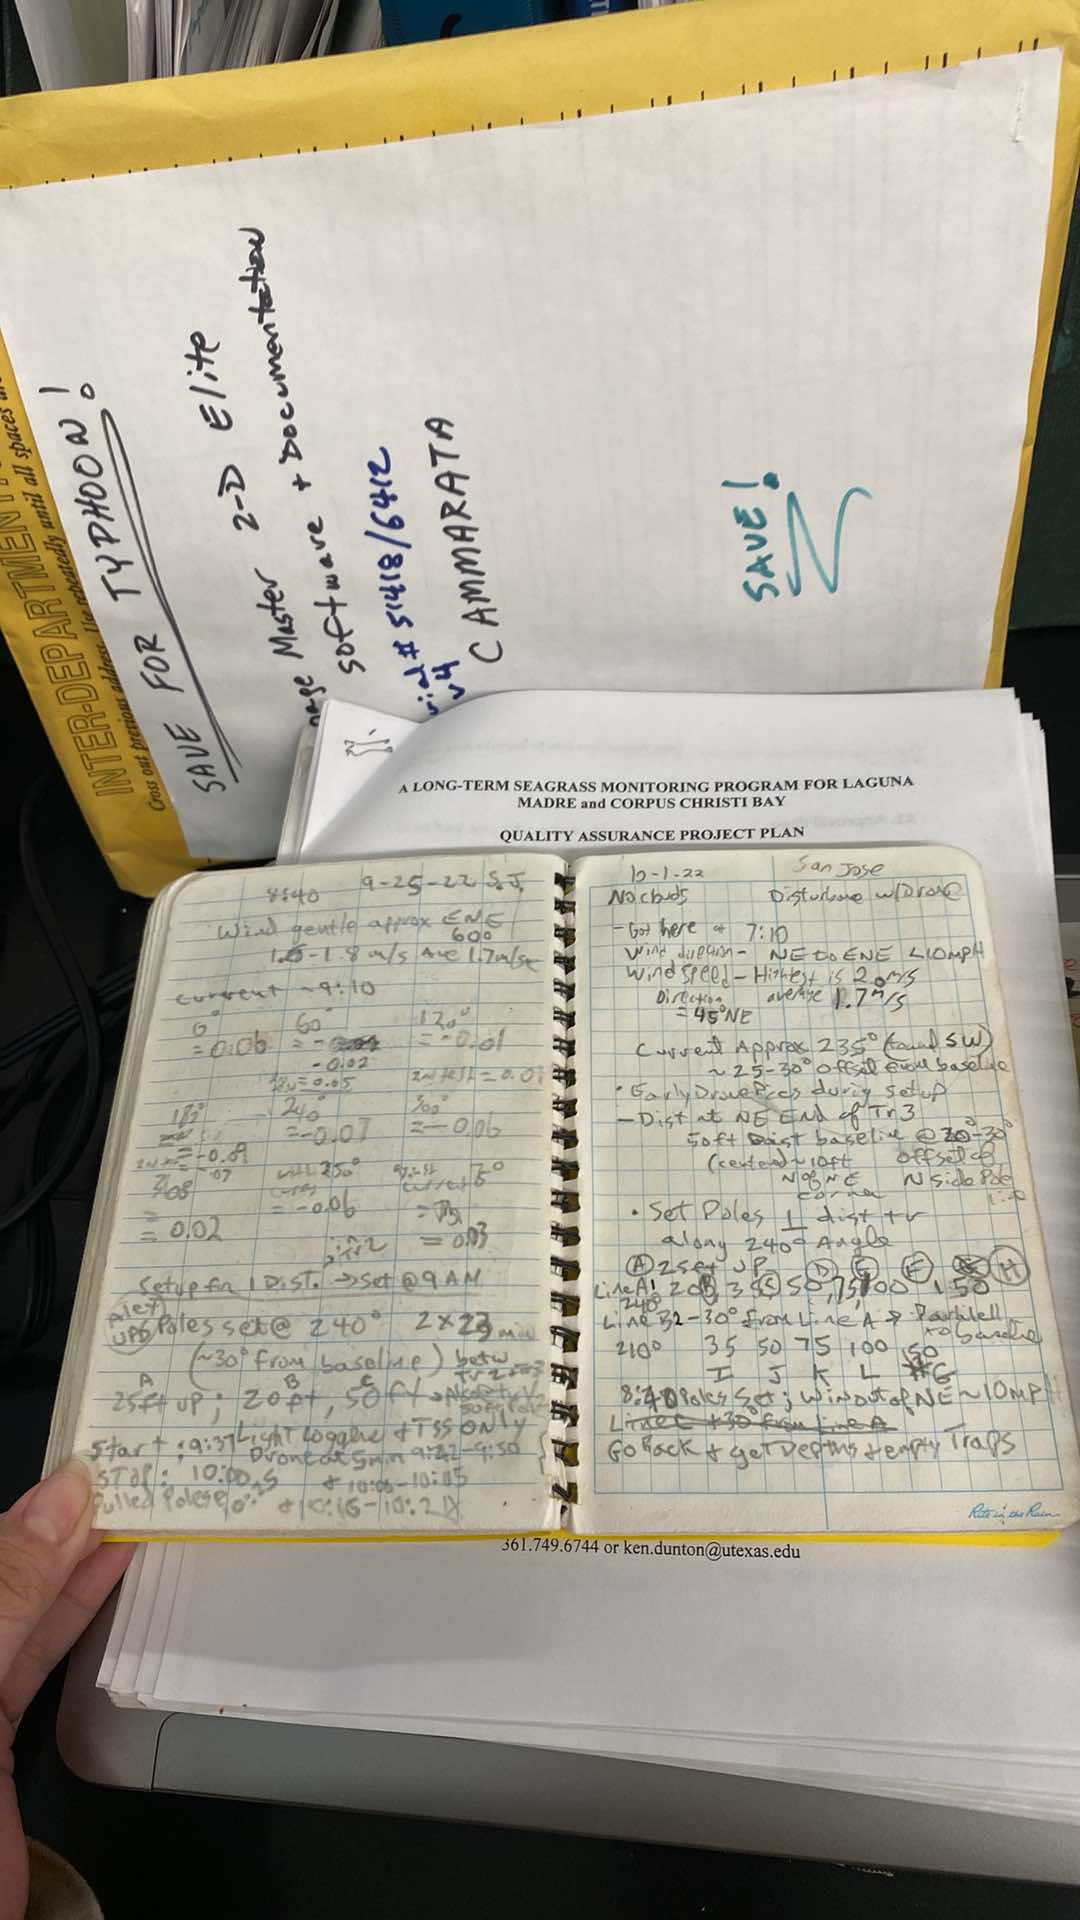 INTER-DEPARTMENT
Cross out previous address. Use repeatedly until all spaces
SAVE FOR TYPHOON!
Master 2-D Elite
software + Documentation
# 51418/6412
v4
CAMMARATA
SAVE!
A LONG-TERM SEAGRASS MONITORING PROGRAM FOR LAGUNA
MADRE and CORPUS CHRISTI BAY
QUALITY ASSURANCE PROJECT PLAN
8:40 9-25-22 S.J.
Wind gentle approx ENE
60°
1.8 m/s Ave 1.7 m/s
current ~9:10
60° 120°
= 0.06 = -0.01
-0.02
= 0.05
240° 300°
= -0.07 = -0.06
250°
= -0.06
= 0.02 = 0.03
Setup for 1 Dist. → Set @ 9 AM
Poles set @ 240° 2 x
(~30° from baseline) betw
A B C
25ft up; 20ft, 50ft
Start: 9:37 Light Logger + TSS ONLY
Drone at 5min 9:50
STOP: 10:00 + 10:05
Pulled Poles + 10:16-10:21
10-1-22 San Jose
No clouds Disturbance w/Drone
- Got here at 7:10
Wind direction - NE to ENE <10MPH
Wind speed - Highest is 2.0 m/s
Direction average 1.7 m/s
= 45° NE
Current Approx 235° (toward SW)
~ 25-30° offset from baseline
• Early Drone Pics during setup
- Dist at NE END of Tr3
50ft Dist baseline @ 20-30°
(centered ~10ft offset of
N of NE N side Pole
corner line
• Set Poles ⊥ dist tr
along 240° Angle
(A) 25ft UP (D) (E) (F) (H)
Line A: 20, 35, 50, 75, 100 150
240°
Line B2 -30° from Line A → Parallel
to baseline
210° 35 50 75 100 50
I J K L G
8:40 Poles Set; Wind out of NE ~10MPH
Line C +30 from Line A
Go Back + get Depths + empty Traps
Rite in the Rain
361.749.6744 or ken.dunton@utexas.edu